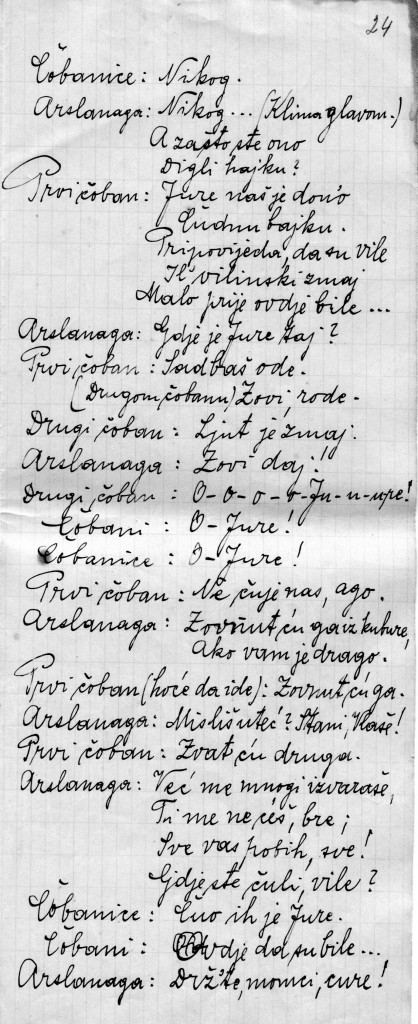 24
Čobanice: Nikog.
Arslanaga: Nikog... (Klima glavom.)
A zašto ste ono
Digli hajku?
Prvi čoban: Jure naš je don'o
Čudnu bajku.
Pripovijeda, da su vile
Il' vilinski zmaj
Malo prije ovdje bile...
Arslanaga: Gdje je Jure taj?
Prvi čoban: Sad baš ode.
(Drugom čobanu) Zovi, rode.
Drugi čoban: Ljut je zmaj.
Arslanaga: Zovi daj!
Drugi čoban: O-o-o-o-Ju-u-ure!
Čobani: O-Jure!
Čobanice: O-Jure!
Prvi čoban: Ne čuje nas, ago.
Arslanaga: Zovnut ću ga iz kubure,
Ako vam je drago.
Prvi čoban (hoće da ide): Zovnut ću ga.
Arslanaga: Misliš uteć? Stani, Vlaše!
Prvi čoban: Zvat ću druga.
Arslanaga: Već me mnogi izvaraše,
Ti me ne ćeš, bre;
Sve vas pobih, sve!
Gdje ste čuli, vile?
Čobanice: Čuo ih je Jure.
Čobani: Ovdje da su bile...
Arslanaga: Drž'te, momci, cure!